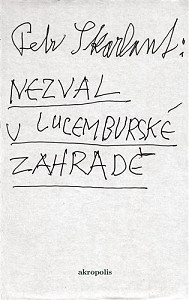 Petr Skarlant:
NEZVAL
V LUCEMBURSKÉ
ZAHRADĚ
akropolis